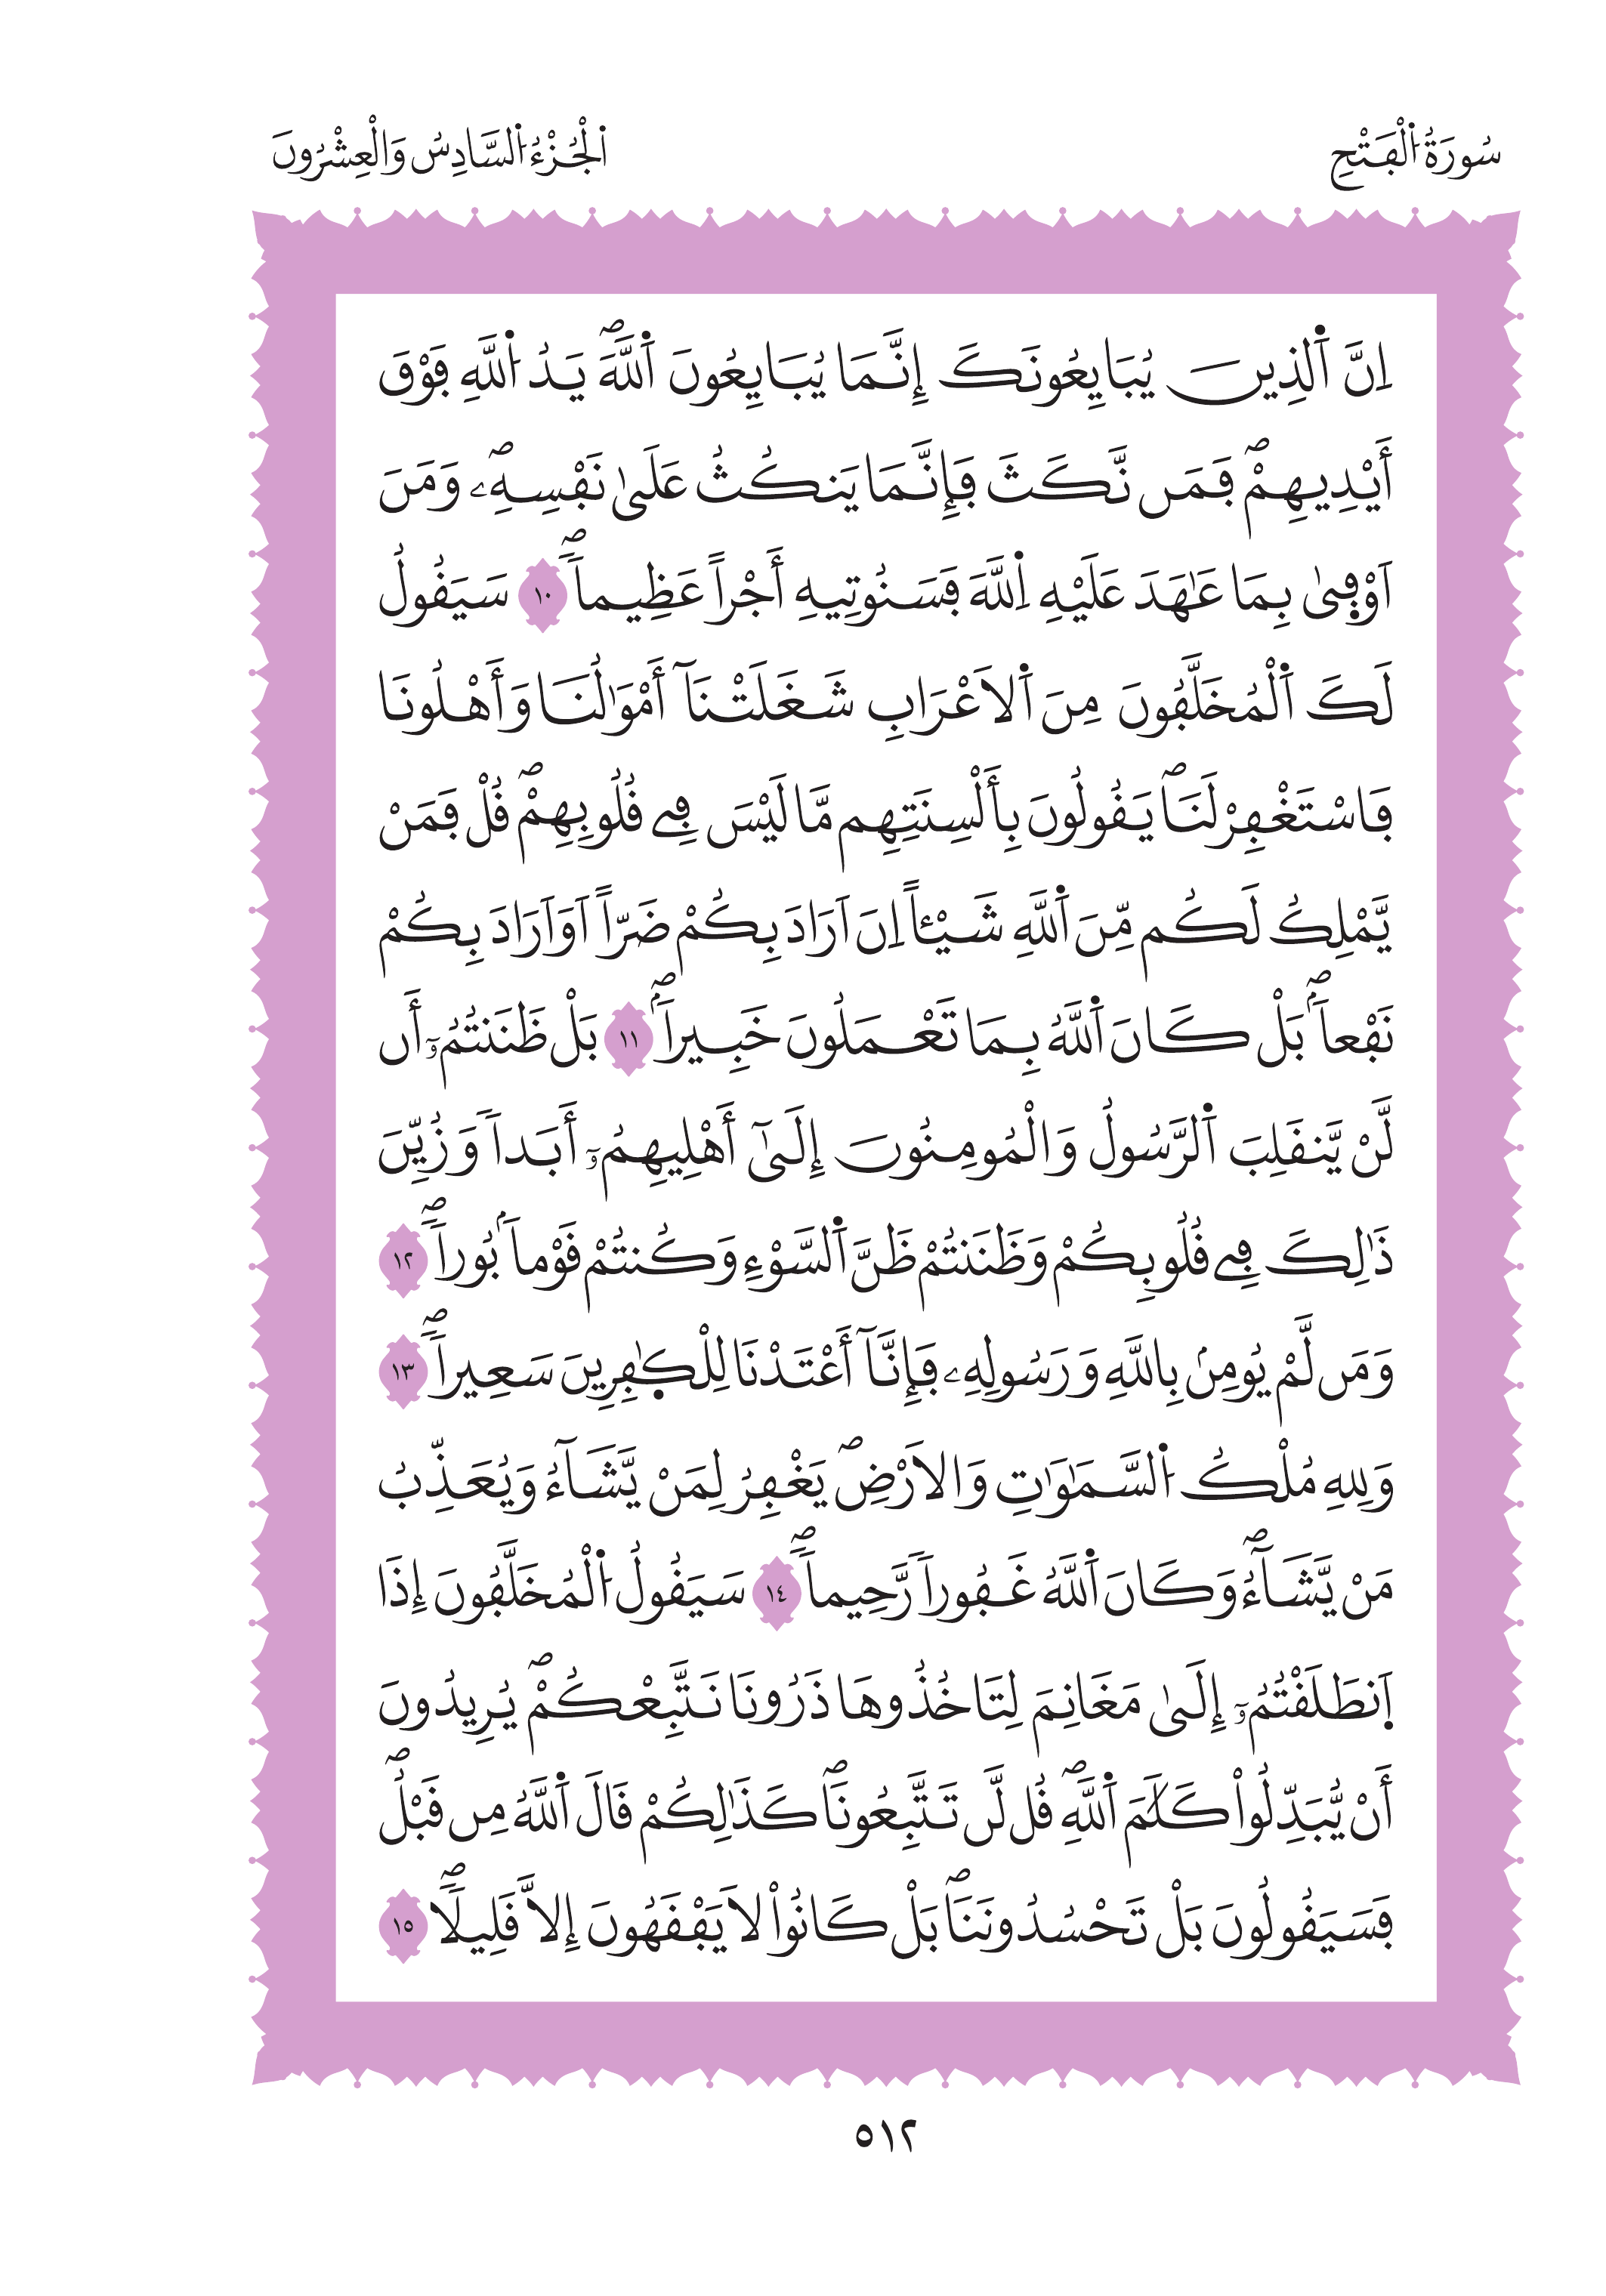 سُورَةُ اُ۬لْفَتْحِ
اَ۬لْجُزْءُ اُ۬لسَّادِسُ وَالْعِشْرُونَ
اِنَّ اَ۬لذِينَ يُبَايِعُونَكَ إِنَّمَا يُبَايِعُونَ اَ۬للَّهَۖ يَدُ اُ۬للَّهِ فَوْقَ
أَيْدِيهِمْۖ فَمَن نَّكَثَ فَإِنَّمَا يَنكُثُ عَلَىٰ نَفْسِهِۦۖ وَمَنَ
اَوْفِىٰ بِمَا عَٰهَدَ عَلَيْهِ اِ۬للَّهَ فَسَنُوتِيهِ أَجْراً عَظِيماٗۖ ١٠ سَيَقُولُ
لَكَ اَ۬لْمُخَلَّفُونَ مِنَ اَ۬لَاعْرَابِ شَغَلَتْنَآ أَمْوَٰلُنَا وَأَهْلُونَا
فَاسْتَغْفِرْ لَنَاۖ يَقُولُونَ بِأَلْسِنَتِهِم مَّا لَيْسَ فِے قُلُوبِهِمْۖ قُلْ فَمَنْ
يَّمْلِكُ لَكُم مِّنَ اَ۬للَّهِ شَيْـٔاً اِنَ اَرَادَ بِكُمْ ضَرّاً اَوَ اَرَادَ بِكُمْ
نَفْعاَۢۖ بَلْ كَانَ اَ۬للَّهُ بِمَا تَعْمَلُونَ خَبِيراَۢۖ ١١ بَلْ ظَنَنتُمُۥٓ أَن
لَّنْ يَّنقَلِبَ اَ۬لرَّسُولُ وَالْمُومِنُونَ إِلَىٰٓ أَهْلِيهِمُۥٓ أَبَداٗ وَزُيِّنَ
ذَٰلِكَ فِے قُلُوبِكُمْ وَظَنَنتُمْ ظَنَّ اَ۬لسَّوْءِ وَكُنتُمْ قَوْماَۢ بُوراٗۖ ١٢
وَمَن لَّمْ يُومِنۢ بِاللَّهِ وَرَسُولِهِۦ فَإِنَّآ أَعْتَدْنَا لِلْكٰ۪فِرِينَ سَعِيراٗۖ ١٣
وَلِلهِ مُلْكُ اُ۬لسَّمَٰوَٰتِ وَالَارْضِۖ يَغْفِرُ لِمَنْ يَّشَآءُ وَيُعَذِّبُ
مَنْ يَّشَآءُۖ وَكَانَ اَ۬للَّهُ غَفُوراٗ رَّحِيماٗۖ ١٤ سَيَقُولُ اُ۬لْمُخَلَّفُونَ إِذَا
اَ۪نطَلَقْتُمُۥٓ إِلَىٰ مَغَانِمَ لِتَاخُذُوهَا ذَرُونَا نَتَّبِعْكُمْۖ يُرِيدُونَ
أَنْ يُّبَدِّلُواْ كَلَٰمَ اَ۬للَّهِۖ قُل لَّن تَتَّبِعُونَاۖ كَذَٰلِكُمْ قَالَ اَ۬للَّهُ مِن قَبْلُۖ
فَسَيَقُولُونَ بَلْ تَحْسُدُونَنَاۖ بَلْ كَانُواْ لَا يَفْقَهُونَ إِلَّا قَلِيلاٗۖ ١٥
٥١٢